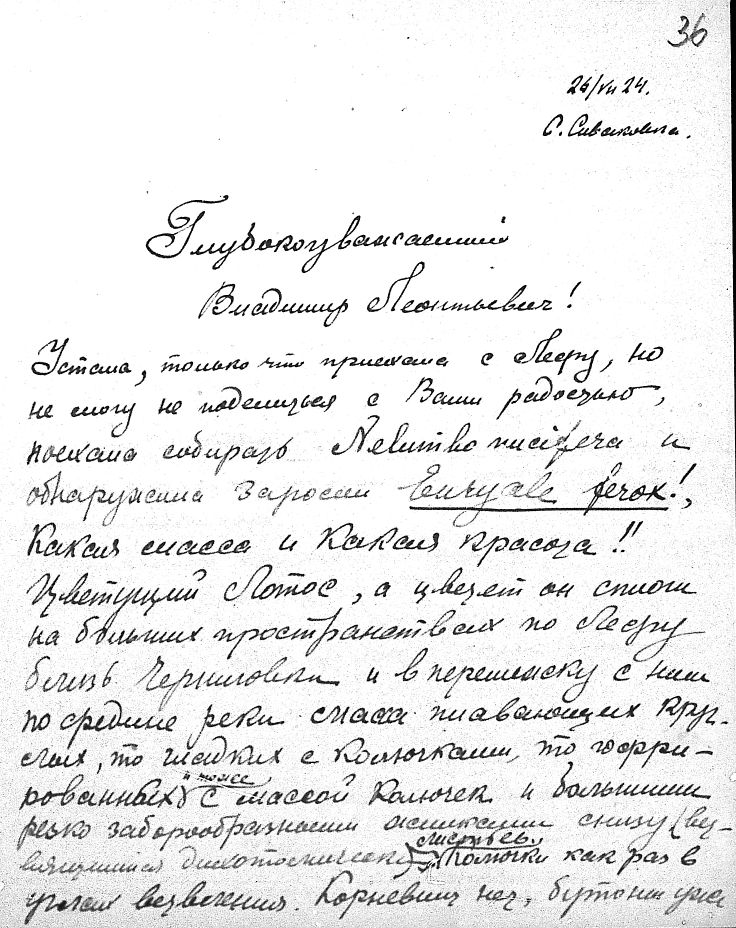 36
26/VII 24.
С. Сиваковка.
Глубокоуважаемый
Владимир Леонтьевич!
Устала, только что приехала с Лефу, но
не могу не поделиться с Вами радостью,
поехала собирать Nelumbo nucifera и
обнаружила заросли Euryale ferox!,
Какая масса и какая красота!!
Цветущий Лотос, а цветет он сплошь
на больших пространствах по Лефу
близь Черниговки и вперемежку с ним
по средине реки масса плавающих круг-
лых, то гладких с колючками, то гофри-
рованных и тоже с массой колючек и большими
резко заборообразными жилками снизу (вет-
вящимися дихотомически) листьев. Колючки как раз в
углах ветвления. Корневищ нет, бутоны уже